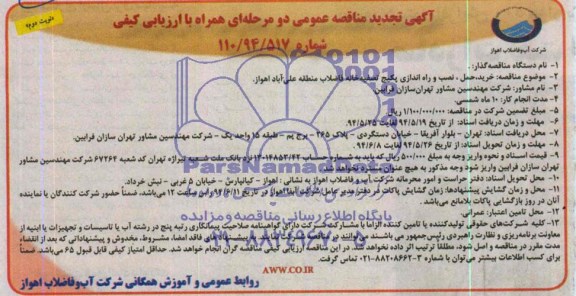 نوبت دوم
آگهی تجدید مناقصه عمومی دو مرحله‌ای همراه با ارزیابی کیفی
شماره ۱۱۰/۹۴/۵۱۷
شرکت آب‌وفاضلاب اهواز
۱- نام دستگاه مناقصه‌گذار:
۲- موضوع مناقصه: خرید،حمل ، نصب و راه اندازی پکیج تصفیه‌خانه فاضلاب منطقه علی‌آباد اهواز.
۳- نام مشاور: شرکت مهندسین مشاور تهران‌سازان فرابین
۴- مدت انجام کار: ۱۰ ماه شمسی.
۵- مبلغ تضمین شرکت در مناقصه: ۱/۱۰۰/۰۰۰/۰۰۰ ریال
۶- مهلت و زمان دریافت اسناد: از تاریخ ۹۴/۵/۱۹ لغایت ۹۴/۵/۲۵
۷- محل دریافت اسناد: تهران - بلوار آفریقا - خیابان دستگردی - پلاک ۲۶۵ - برج پم - طبقه ۱۵ واحد یک - شرکت مهندسین مشاور تهران سازان فرابین.
۸- مهلت و زمان تحویل اسناد: از تاریخ ۹۴/۵/۲۶ لغایت ۹۴/۶/۸
۹- قیمت اسناد و نحوه واریز وجه به مبلغ ۵۰۰/۰۰۰ ریال که باید به شماره حساب نزد بانک ملت شعبه نیرآژه تهران کد شعبه ۶۷۲۶۴ شرکت مهندسین مشاور
تهران سازان فرابین واریز شود وجه مذکور به هیچ عنوان مسترد نخواهد شد.
۱۰- محل تحویل اسناد: دفتر حراست و امور محرمانه شرکت آب‌وفاضلاب اهواز به نشانی : اهواز - کیانپارس - خیابان ۵ غربی - نبش خرداد.
۱۱- محل و زمان گشایش پیشنهادها: زمان گشایش پاکات در دفتر مدیرعامل شرکت آبفا اهواز در تاریخ ۹۴/۶/۱۱ راس ساعت ۱۲ می‌باشد، ضمناً حضور شرکت کنندگان یا نماینده
آنان در روز بازگشایی پاکات بلامانع می‌باشد.
۱۲- محل تامین اعتبار: عمرانی.
۱۳- کلیه شرکت‌های حقوقی تولیدکننده یا تامین کننده الزاما با مشارکت شرکت دارای گواهینامه صلاحیت پیمانکاری رتبه پنج در رشته آب یا تاسیسات و تجهیزات یا ابنیه از
معاونت برنامه‌ریزی و نظارت راهبردی رئیس‌جمهور می‌باشند فاقد امضا، مشروط، مخدوش و پیشنهاداتی که بعد از انقضاء
مدت مقرر در مناقصه و اصل شود، مطلقاً ترتیب اثر داده نخواهد شد. در این مناقصه ارزیابی کیفی مناقصه گران انجام خواهد شد. حداقل امتیاز کیفی قابل قبول ۶۵ می‌باشد. ضمناً
برای کسب اطلاعات بیشتر می‌توان با شماره ۳-۸۸۲۰۸۶۶۲-۰۲۱ تماس حاصل نمود.
AWW.CO.IR
روابط عمومی و آموزش همگانی شرکت آب‌وفاضلاب اهواز
ParsNamadData
پایگاه اطلاع رسانی مناقصه و مزایده
۰۲۱-۸۸۳۴۹۶۷۰-۵